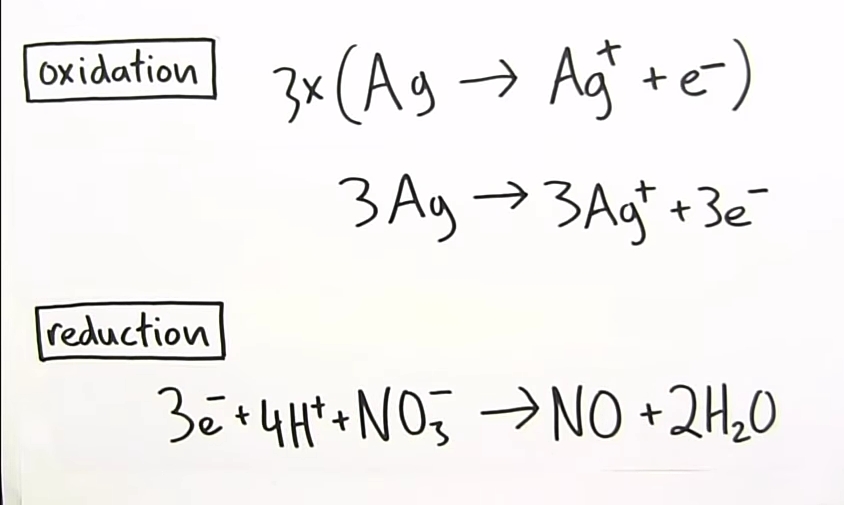 oxidation 3x(Ag → Ag⁺ + e⁻)
3Ag → 3Ag⁺ + 3e⁻
reduction
3e⁻ + 4H⁺ + NO₃⁻ → NO + 2H₂O